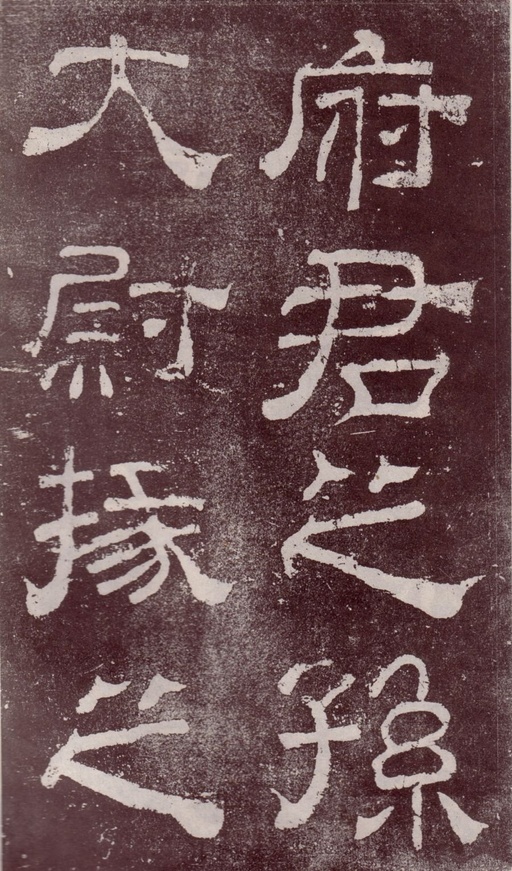 府君之孫
大尉掾之